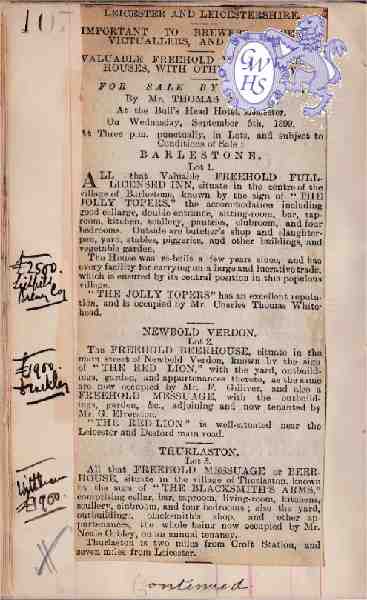 LEICESTER AND LEICESTERSHIRE.
IMPORTANT TO
VICTUALLERS, AND
VALUABLE FREEHOLD
HOUSES, WITH
GWHS
FOR SALE BY
By Mr. THOMAS
At the Bull's Head Hotel,
On Wednesday, September 5th,
At Three p.m. punctually, in Lots, and subject to
Conditions of Sale:
BARLESTONE.
Lot 1.
ALL that Valuable FREEHOLD FULL-
LICENSED INN, situate in the centre of the
village of Barlestone, known by the sign of "THE
JOLLY TOPERS," the accommodation including
good cellarge, double entrance, sitting-room, bar, tap-
room, kitchen, scullery, pantries, clubroom, and four
bedrooms. Outside are butcher's shop and slaughter-
pen, yard, stables, piggeries, and other buildings, and
vegetable garden.
The House was re-built a few years since, and has
every facility for carrying on a large and lucrative trade,
which is ensured by its central position in this populous
village.
"THE JOLLY TOPERS" has an excellent reputa-
tion, and is occupied by Mr. Charles Thomas White-
head.
£2500
NEWBOLD VERDON.
Lot 2.
The FREEHOLD BEERHOUSE, situate in the
main street of Newbold Verdon, known by the sign
of "THE RED LION," with the yard, outbuild-
ings, garden, and appurtenances thereto, as the same
are now occupied by Mr. P. Gilliver, and also a
FREEHOLD MESSUAGE, with the outbuild-
ings, garden, &c., adjoining and now tenanted by
Mr. G.
"THE RED LION" is well-situated near the
Leicester and Desford main road.
THURLASTON.
Lot 3.
All that FREEHOLD MESSUAGE or BEER-
HOUSE, situate in the village of Thurlaston, known
by the sign of "THE BLACKSMITH'S ARMS,"
comprising cellar, bar, taproom, living-room, kitchens,
scullery, clubroom, and four bedrooms; also the yard,
outbuildings, blacksmith's shop, and other ap-
purtenances, the whole being now occupied by Mr.
on an annual tenancy.
Thurlaston is two miles from Croft Station, and
seven miles from Leicester.
continued